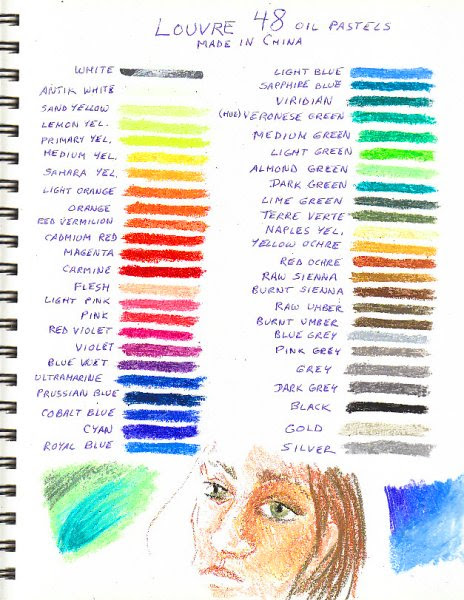 LOUVRE 48 OIL PASTELS
MADE IN CHINA
WHITE
ANTIK WHITE
SAND YELLOW
LEMON YEL.
PRIMARY YEL.
MEDIUM YEL.
SAHARA YEL.
LIGHT ORANGE
ORANGE
RED VERMILION
CADMIUM RED
MAGENTA
CARMINE
FLESH
LIGHT PINK
PINK
RED VIOLET
VIOLET
BLUE VIOLET
ULTRAMARINE
PRUSSIAN BLUE
COBALT BLUE
CYAN
ROYAL BLUE
LIGHT BLUE
SAPPHIRE BLUE
VIRIDIAN
(HUE) VERONESE GREEN
MEDIUM GREEN
LIGHT GREEN
ALMOND GREEN
DARK GREEN
LIME GREEN
TERRE VERTE
NAPLES YEL.
YELLOW OCHRE
RED OCHRE
RAW SIENNA
BURNT SIENNA
RAW UMBER
BURNT UMBER
BLUE GREY
PINK GREY
GREY
DARK GREY
BLACK
GOLD
SILVER